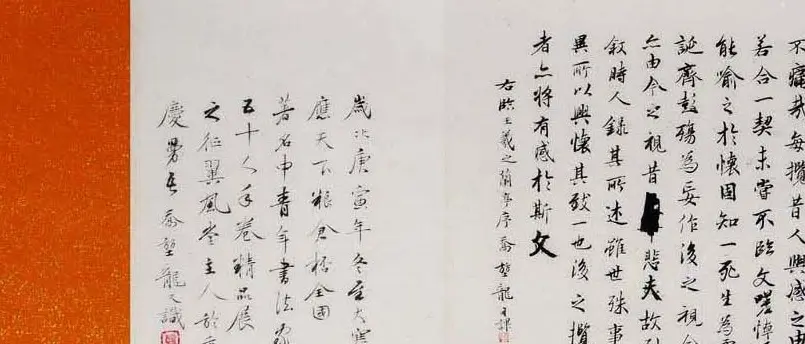 不痛哉每攬昔人興感之由
若合一契未嘗不臨文嗟悼
能喻之於懷固知一死生為
誕齊彭殤為妄作後之視今
亦由今之視昔悲夫故列
敘時人錄其所述雖世殊事
異所以興懷其致一也後之攬
者亦將有感於斯文
右臨王羲之蘭亭序 龍
歲次庚寅年冬至大寒
應天下粮倉全國
著名中青年書法家
五十人手卷精品展
之征翼風堂主人於
慶 龍又識